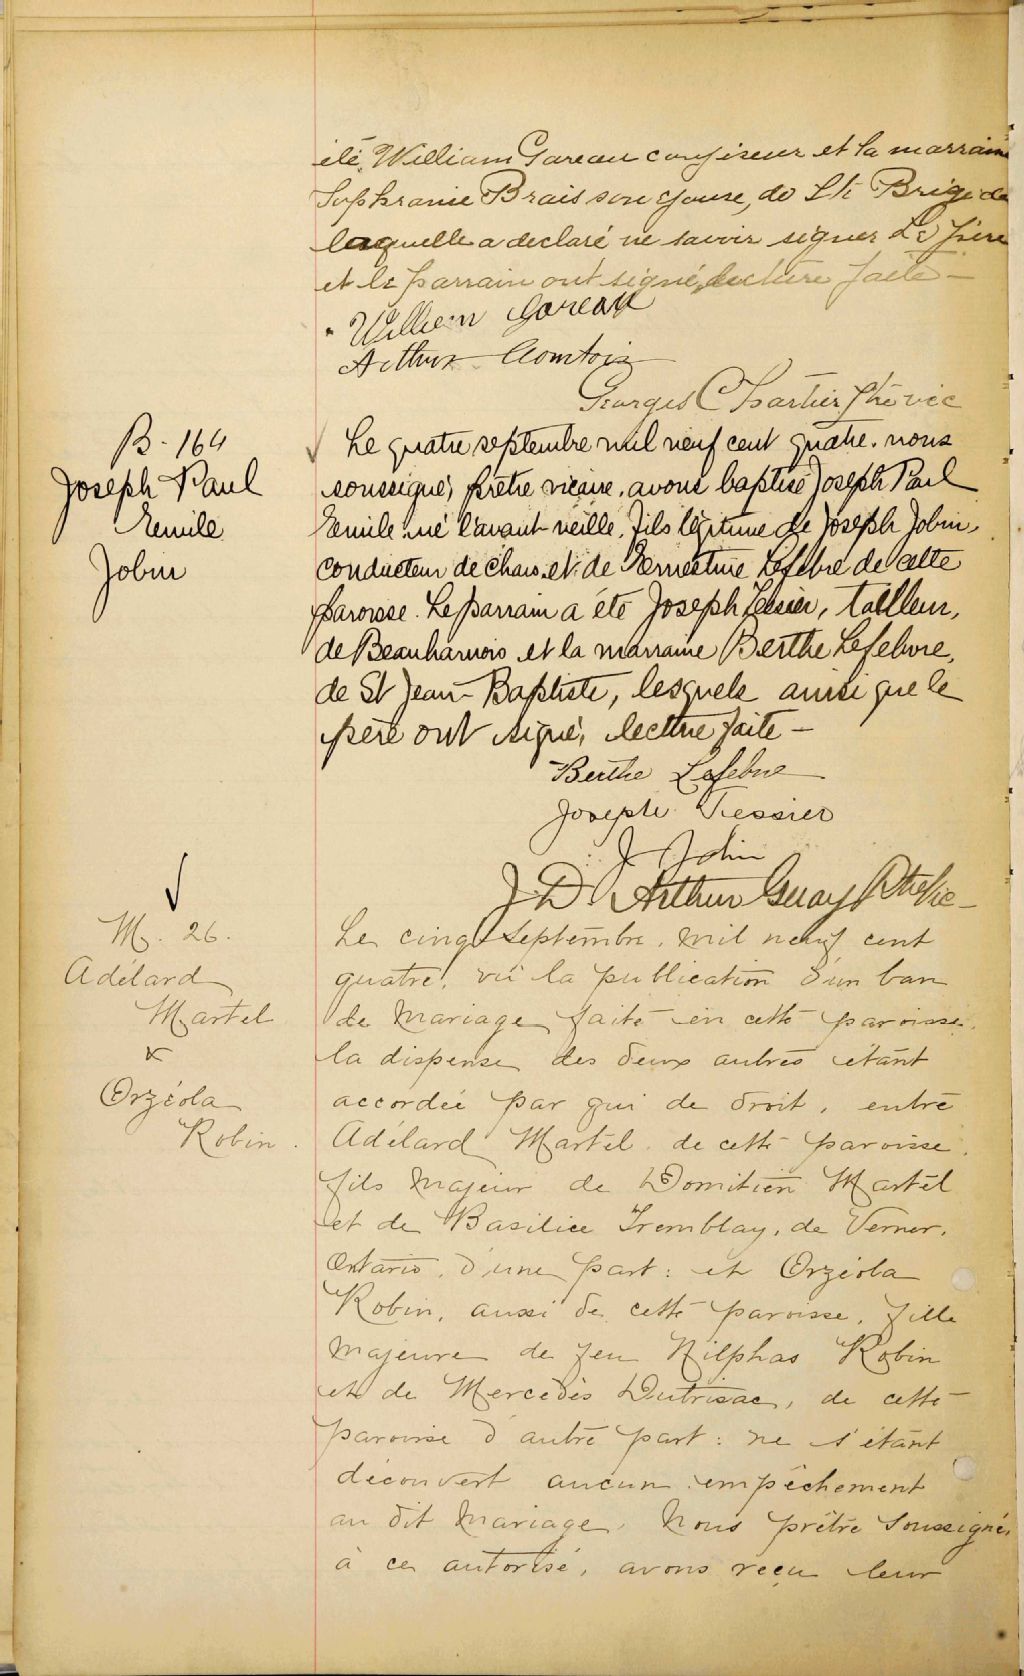 été William Gareau confiseur et la marraine
Sophranie Brais son épouse, de Ste Brigide
laquelle a declaré ne savoir signer Le père
et le parrain ont signé, lecture faite —
William Gareau
Arthur Comtois
Georges Chartier ptre vic
B - 164
Joseph Paul
Emile
Jobin
Le quatre septembre mil neuf cent quatre. nous
soussigné, prêtre vicaire, avons baptisé Joseph Paul
Emile né l'avant-veille, fils légitime de Joseph Jobin,
conducteur de chars et de Ernestine Lefebre de cette
paroisse. Le parrain a été Joseph Tessier, tailleur,
de Beauharnois et la marraine Berthe Lefebvre,
de St Jean-Baptiste, lesquels ainsi que le
père ont signé, lecture faite —
Berthe Lefebvre
Joseph Tessier
J Jobin
J. D. Arthur Guay Ptre Vic —
M. 26.
Adélard
Martel
&
Orzéola
Robin.
Le cinq Septembre, mil neuf cent
quatre, vu la publication d'un ban
de Mariage faite en cette paroisse,
la dispense des deux autres étant
accordée par qui de droit, entre
Adélard Martel de cette paroisse,
fils Majeur de Domitien Martel
et de Basilice Tremblay, de Verner,
Ontario, d'une part: et Orzéola
Robin, aussi de cette paroisse, fille
Majeure de feu Nilphas Robin
et de Mercédès Dutrisac, de cette
paroisse d'autre part: ne s'étant
découvert aucun empêchement
au dit Mariage, Nous prêtre Soussigné,
à ce autorisé, avons reçu leur